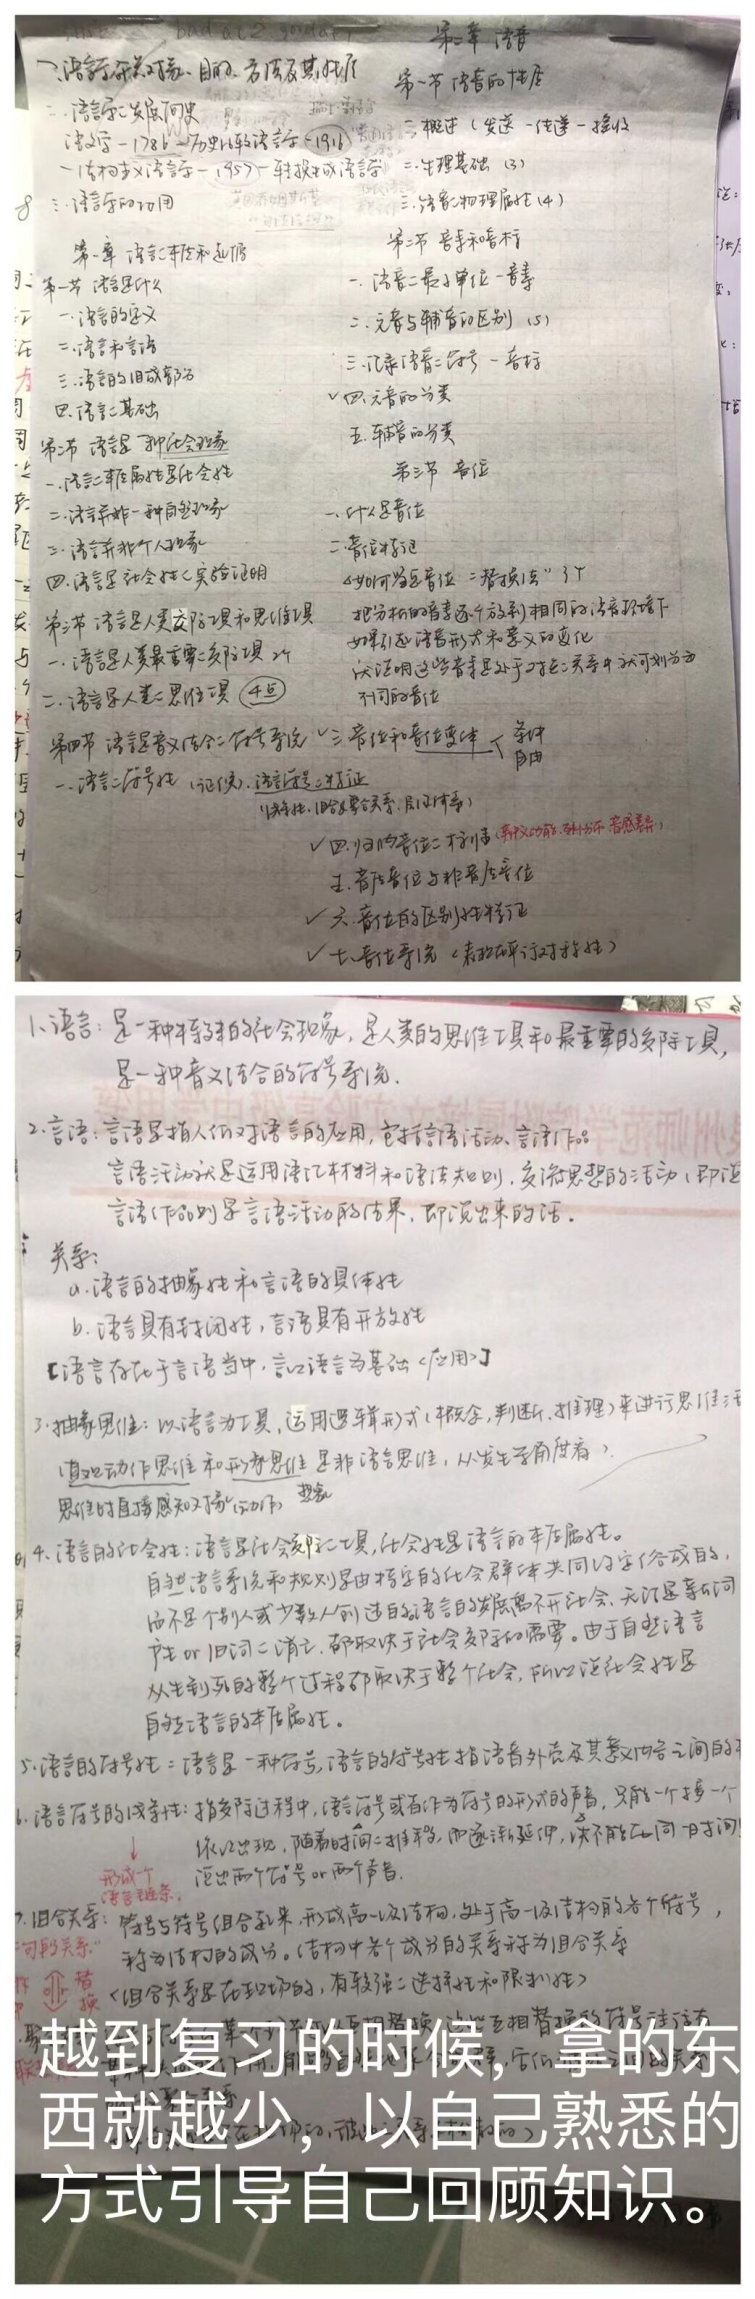 一、语言学研究对象、目的、方法及其性质
二、语言学之发展简史
语文学—1786—历史比较语言学—1916
—结构主义语言学—1957—转换生成语言学
三、语言学的功用
第一章 语言之本质和起源
第一节 语言是什么
一、语言的定义
二、语言和言语
三、语言的组成部分
四、语言之基础
第二节 语言是一种社会现象
一、语言之本质属性是社会性
二、语言并非一种自然现象
三、语言并非个人现象
四、语言是社会性之实验证明
第三节 语言是人类交际工具和思维工具
一、语言是人类最重要之交际工具 2个
二、语言是人类之思维工具 4点
第四节 语言是音义结合之符号系统
一、语言之符号性(证候)、语言符号之特征
(线条性、组合聚合关系、层级体系)
第二章 语音
第一节 语音的性质
一、概述(发送—传递—接收
二、生理基础(3)
三、语音之物理属性(4)
第二节 音素和音标
一、语音之最小单位—音素
二、元音与辅音的区别(5)
三、记录语音之符号—音标
✓四、元音的分类
五、辅音的分类
第三节 音位
一、什么是音位
二、音位特征
如何确定音位="替换法"3个
把分析的音素逐个放到相同的语音环境下
如果引起语音形式和意义的变化
就证明这些音素是处于对立之关系中就可划分为
不同的音位
✓三、音位和音位变体<条件
自由
✓四、归纳音位之标准(辨义功能、互补分布、音感差异)
五、音质音位与非音质音位
✓六、音位的区别性特征
✓七、音位系统(表现在平行对称性)
1、语言:是一种特殊的社会现象,是人类的思维工具和最重要的交际工具,
是一种音义结合的符号系统.
2.言语:言语是指人们对语言的应用,包括言语活动、言语作品
言语活动就是运用语汇材料和语法规则,交流思想的活动(即说
言语作品则是言语活动的结果,即说出来的话。
关系:
a.语言的抽象性和言语的具体性
b.语言具有封闭性,言语具有开放性
【语言存在于言语当中,言以语言为基础<应用>】
3.抽象思维:以语言为工具,运用逻辑形式(概念,判断、推理)来进行思维活
(直观动作思维和形象思维是非语言思维,从发生学角度看).
思维时直接感知对象(动作) 表象
4、语言的社会性:语言是社会交际之工具,社会性是语言的本质属性。
自然语言系统和规则是由特定的社会群体共同约定俗成的,
而不是个别人或少数人创造的语言的发展离不开社会、无论是新词
产生or旧词之消亡,都取决于社会交际的需要。由于自然语言
从生到死的整个过程都取决于整个社会,所以说社会性是
自然语言的本质属性。
5.语言的符号性:语言是一种符号,语言的符号性指语音外壳及其意义内容之间的
6.语言符号的线条性:指交际过程中,语言符号或者作为符号的形式的声音,只能一个接一个
依次出现,随着时间之推移,而逐渐延伸,决不能在同一时间
说出两个符号or两个声音.
形成一个
语言链条.
7.组合关系:符号与符号组合起来,形成高一级结构,处于高一级结构的各个符号,
称为结构的成分。结构中各个成分的关系称为组合关系
"句的关系"
<组合关系是在现场的,有较强之选择性和限制性>
替换
越到复习的时候，拿的东
西就越少，以自己熟悉的
方式引导自己回顾知识。